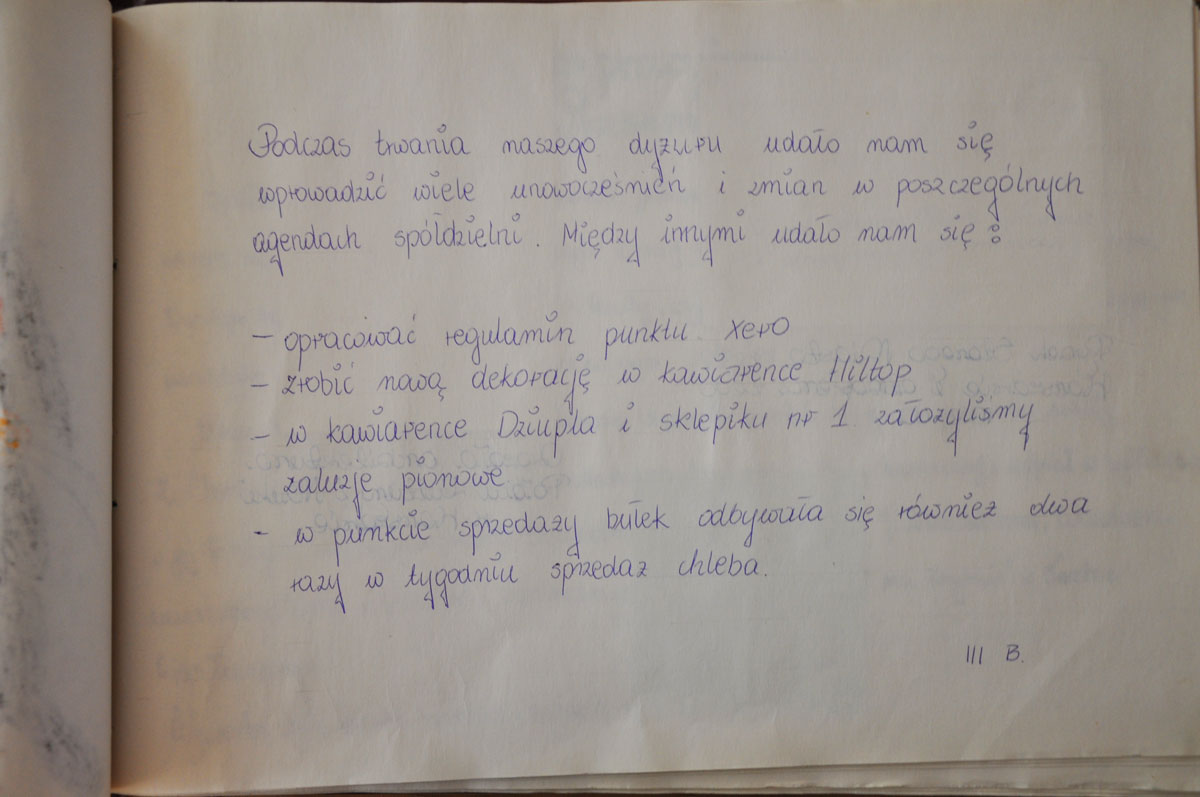 Podczas trwania naszego dyżuru udało nam się
wprowadzić wiele unowocześnień i zmian w poszczególnych
agendach spółdzielni. Między innymi udało nam się :
- opracować regulamin punktu xero
- zrobić nową dekorację w kawiarence Hiltop
- w kawiarence Dziupla i sklepiku nr 1 założyliśmy
żaluzje pionowe
- w punkcie sprzedaży bułek odbywała się również dwa
razy w tygodniu sprzedaż chleba.
III B.